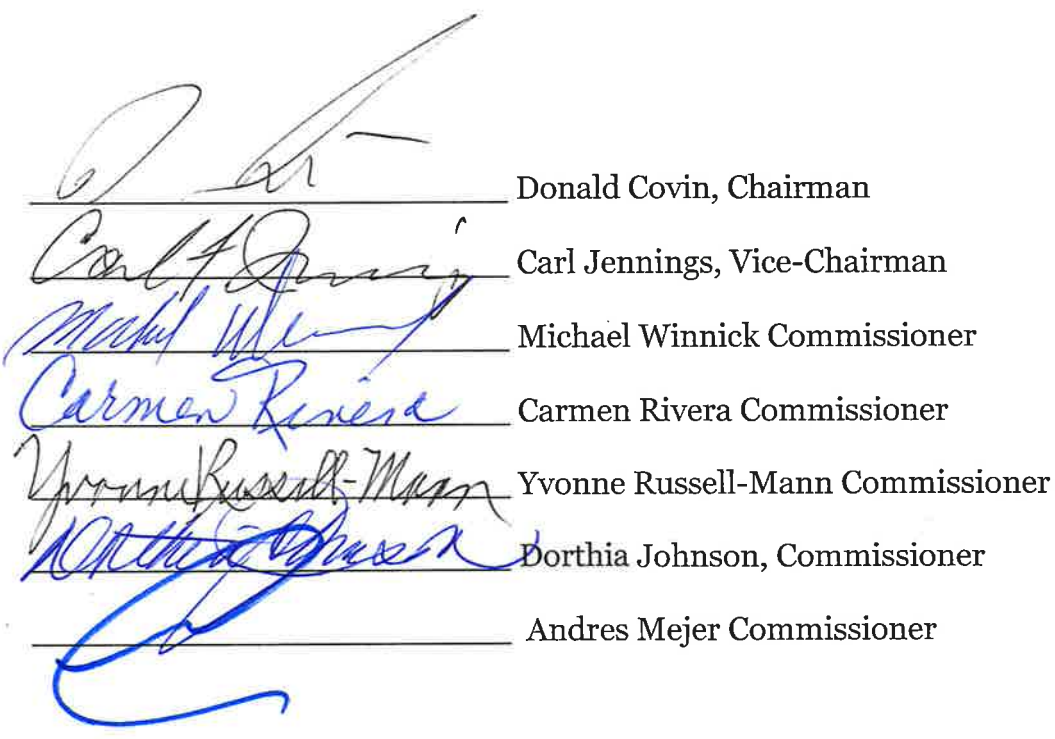 Donald Covin, Chairman
Carl F Jennings Carl Jennings, Vice-Chairman
Michael Winnick Commissioner
Carmen Rivera Carmen Rivera Commissioner
Yvonne Russell-Mann Yvonne Russell-Mann Commissioner
Dorthia Johnson Dorthia Johnson, Commissioner
Andres Mejer Commissioner